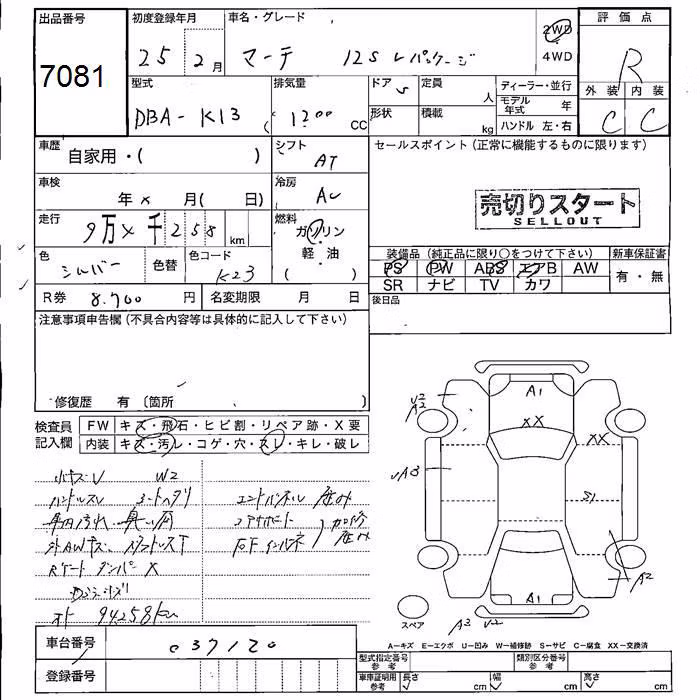 出品番号
7081
初度登録年月
25 2月
車名・グレード
マーチ 12S Vパッケージ
2WD
4WD
評価点
R
外装 内装
C C
型式
DBA-K13
排気量
1200 CC
ドア 5
形状
定員 人
積載 kg
ディーラー・並行
モデル年式 年
ハンドル 左・右
車歴
自家用・( )
シフト
AT
セールスポイント(正常に機能するものに限ります)
売切りスタート
SELLOUT
車検
年 × 月( 日)
冷房
AC
走行
9万×千258 km
燃料
ガソリン
軽・油
( )
色
シルバー
色替
色コード
K23
装備品(純正品に限り○をつけて下さい)
新車保証書
PS PW ABS エアB AW
SR ナビ TV カワ
有・無
R券 8.700円
名変期限 月 日
後日品
注意事項申告欄(不具合内容等は具体的に記入して下さい)
修復歴 有(箇所 )
検査員記入欄
FW キズ・飛石・ヒビ割・リペア跡・X要
内装 キズ・汚レ・コゲ・穴・スレ・キレ・破レ
小キズU W2
ハンドルスレ シートヘタリ
車内汚れ
外AWキズ
Rゲートダンパー×
オド 94258km
エンドパネル 歪み
コアサポート
右Fインパネ
加修歪み
A1
XX
XX
U2
A2
UA3
S1
A2
A1
スペア
A3 U2
A-キズ E-エクボ U-凹み W-補修跡 S-サビ C-腐食 XX-交換済
車台番号
037120
登録番号
型式指定番号
参考
類別区分番号
参考
車庫証明用
参考
長さ cm
幅 cm
高さ cm